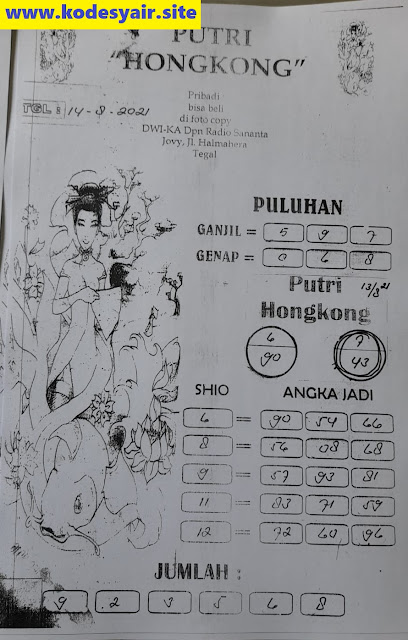 www.kodesyair.site
PUTRI
"HONGKONG"
Pribadi
bisa beli
di foto copy
DWI-KA Dpn Radio Sananta
Jovy, Jl. Halmahera
Tegal
TGL : 14-8-2021
PULUHAN
GANJIL = 5 9 7
GENAP = 0 6 8
Putri 13/8 21
Hongkong
6 7
90 43
SHIO ANGKA JADI
6 = 90 54 66
8 = 56 08 68
9 = 57 93 81
11 = 83 71 59
12 = 72 60 96
JUMLAH :
9 2 3 5 6 8